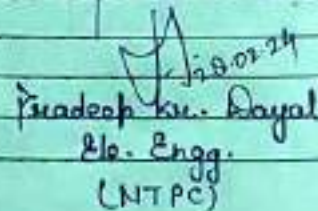 28.02.24
Pradeep Kr. Dayal
Ele. Engg.
(NTPC)